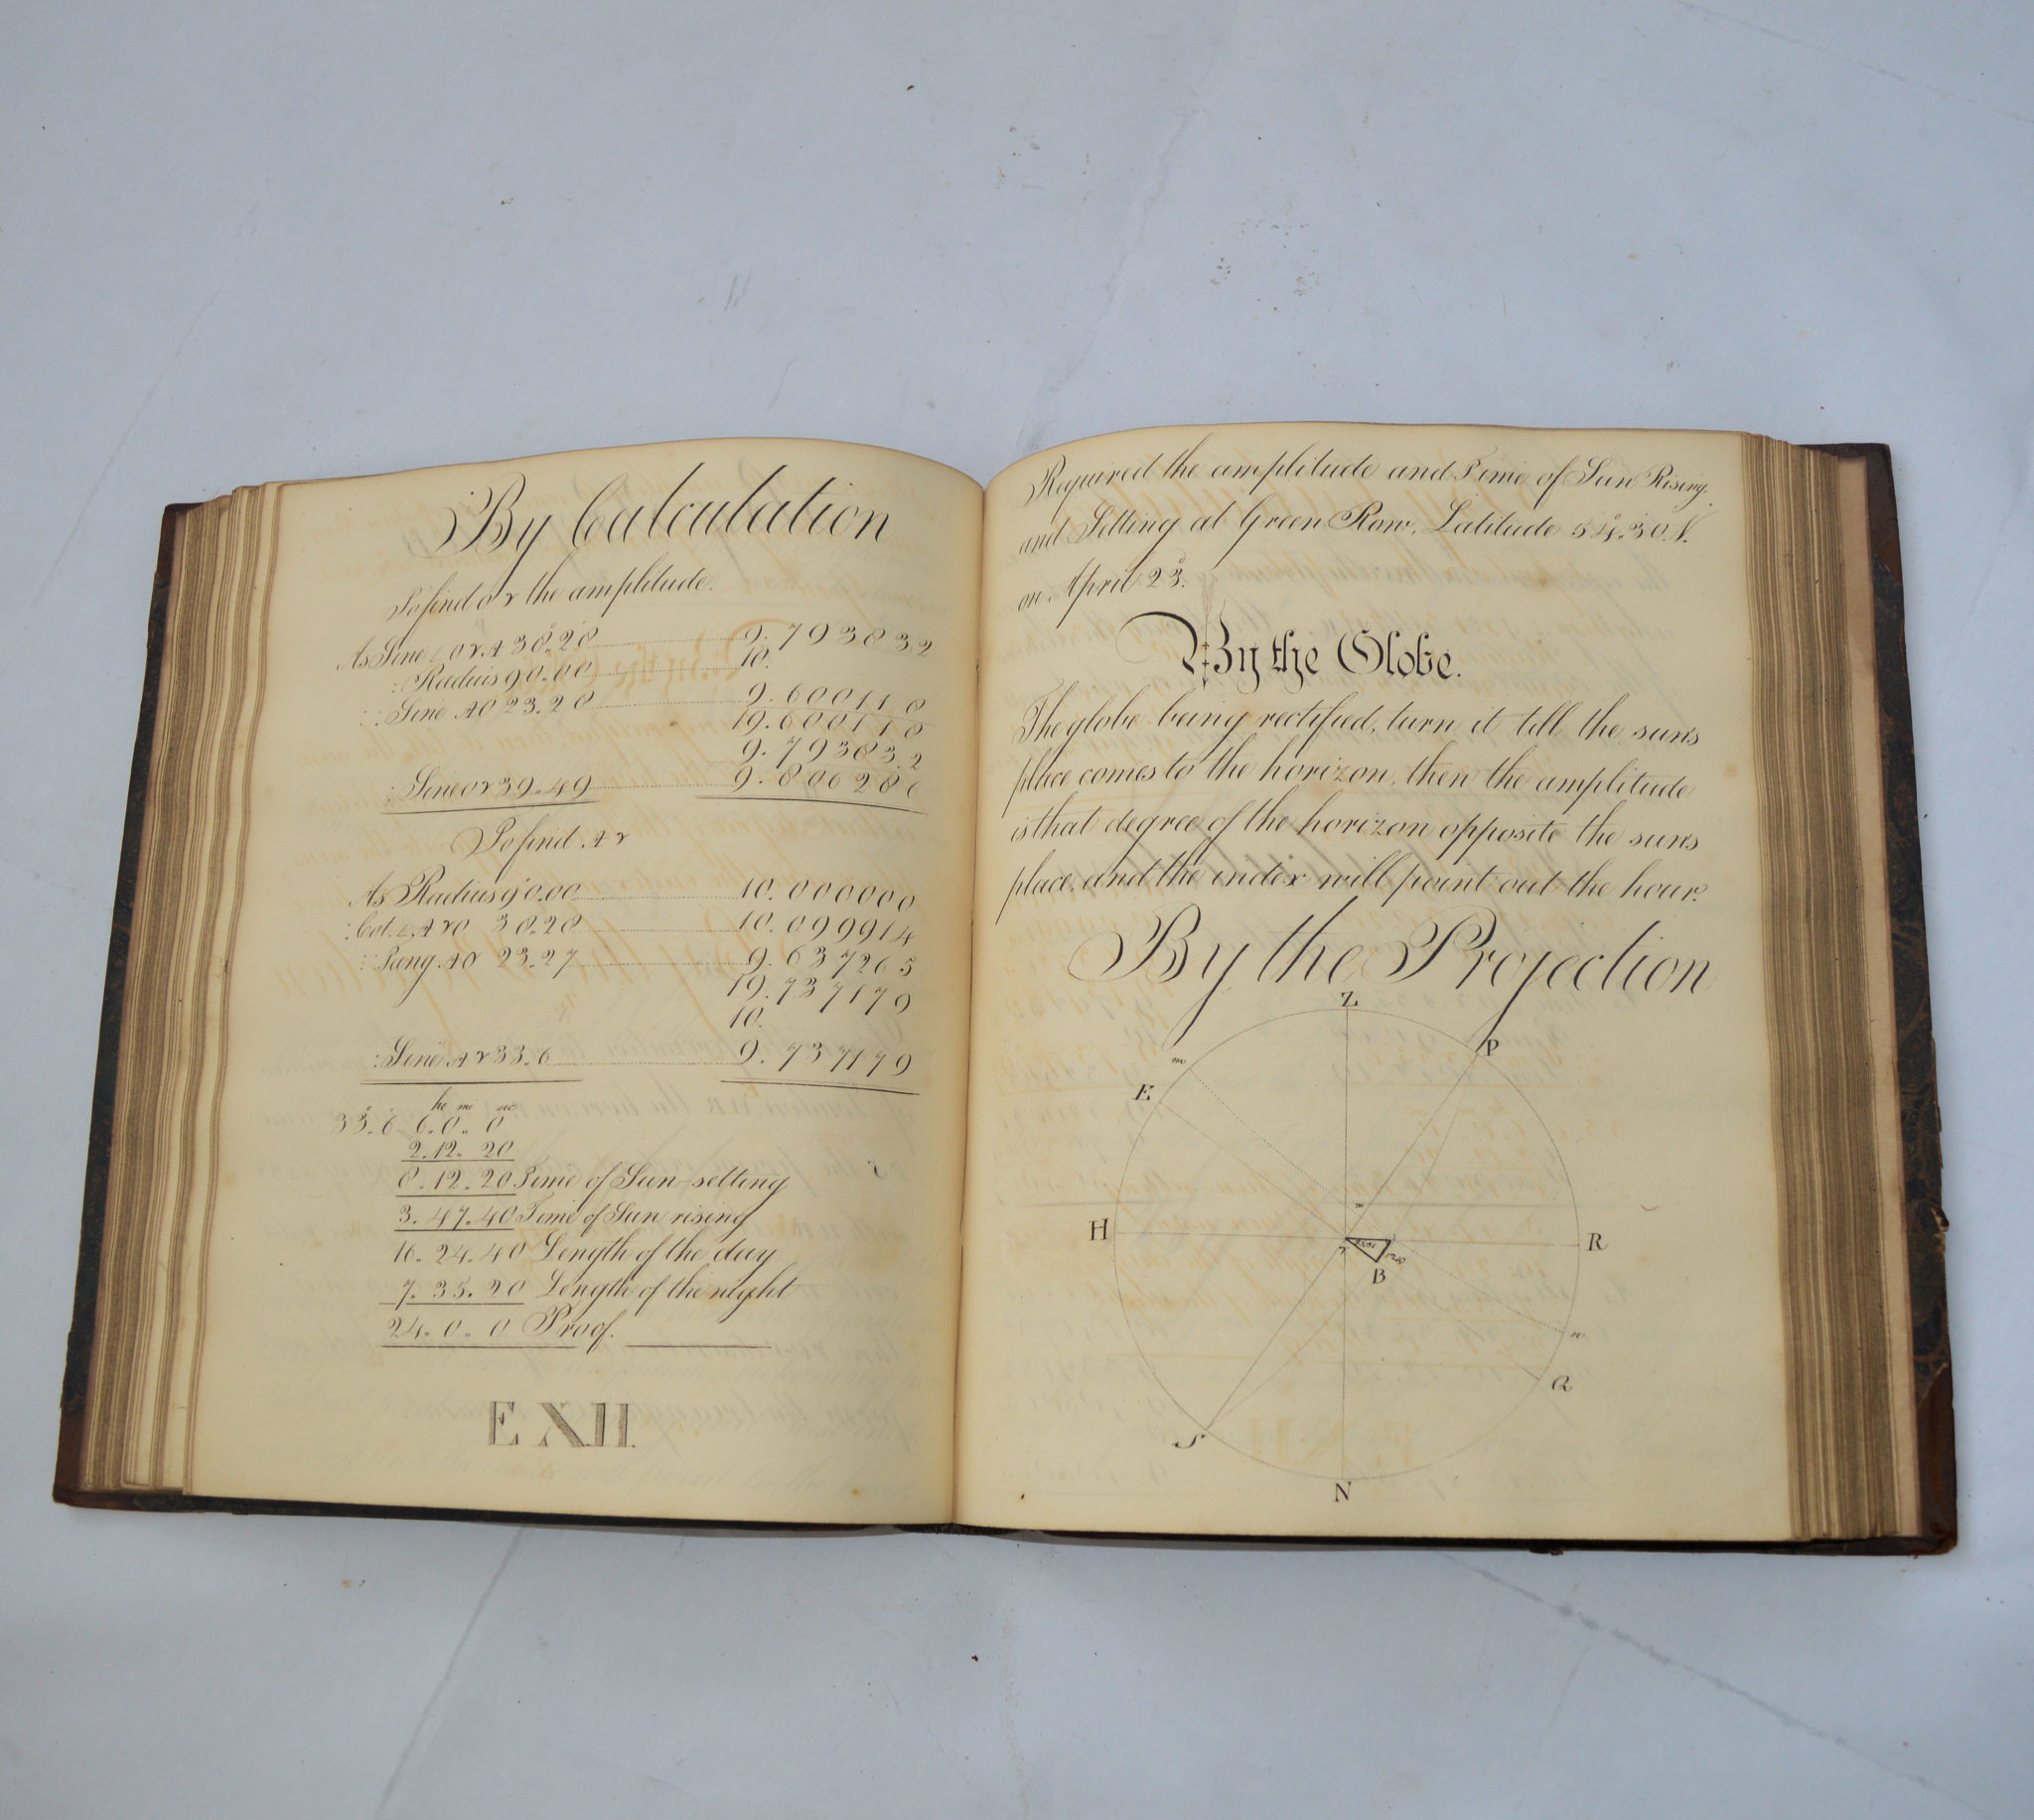 By Calculation
To find ☉ ♈ the amplitude.
As Sine ∠ ☉ ♈ A 38°.28' 9.793832
: Radius 90.00 10.
:: Sine A☉ 23.28 9.600118
19.600118
9.793832
: Sine ☉ ♈ 39.49 9.806286
To find A ♈
As Radius 90.00 10.000000
: Cot. ∠ A ♈ ☉ 38.28 10.099914
:: Tang A☉ 23.27 9.637265
19.737179
10.
: Sine A ♈ 33.6 9.737179
ho mi
33°.6 6.0..0
2.12..20
8.12.20 Time of Sun setting
3.47.40 Time of Sun rising
16.24.40 Length of the day
7.35.20 Length of the night
24.0..0 Proof.
E XII.
Required the amplitude and Time of Sun Rising
and Setting at Green Row. Latitude 54°.30 N.
on April 23.
By the Globe.
The globe being rectified, turn it till the suns
place comes to the horizon, then the amplitude
is that degree of the horizon opposite the suns
place, and the index will point out the hour.
By the Projection
Z
P
m
E
H
R
B
n
Q
S
N